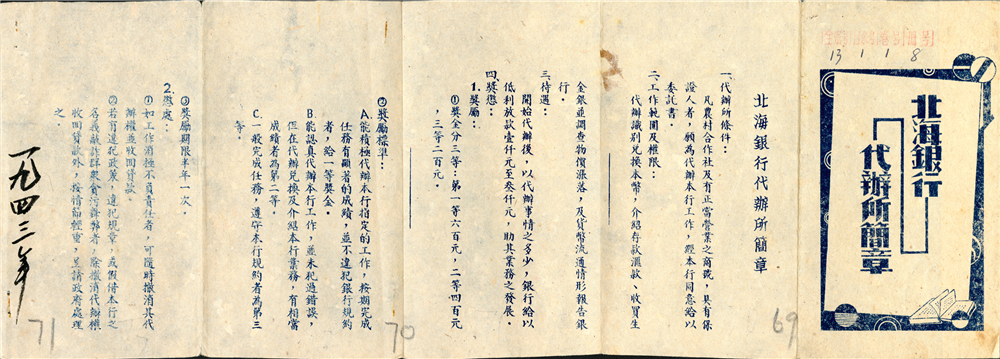 13118
北海銀行
代辦所簡章
69
北海銀行代辦所簡章
一、代辦所條件：
凡農村合作社及有正當營業之商號，具有保
證人者，願為代辦本行工作，經本行同意給以
委託書。
二、工作範圍及權限：
代辦識别兌換本幣，介紹存款滙款、收買生
金銀並調查物價漲落，及貨幣流通情形報告銀
行。
三、待遇：
開始代辦後，以代辦事情之多少，銀行給以
低利放款壹仟元至叁仟元，助其業務之發展。
四、獎懲：
1.獎勵：
①獎金分三等：第一等六百元，二等四百元
，三等二百元。
70
②獎勵標準：
A.能積極代辦本行指定的工作，按期完成
任務有顯著的成績，並不違犯銀行規約
者，給一等獎金。
B.能認真代辦本行工作，並未犯過錯誤，
僅在代辦兌換及介紹本行業務，有相當
成績者為第二等。
C.一般完成任務，遵守本行規約者為第三
等。
③獎勵期限半年一次。
2.懲處：
①如工作消極不負責任者，可隨時撤消其代
辦權並收回貸款。
②若有違犯政策，違犯規章，或假借本行之
名義欺詐群衆貪污舞弊者，除撤消代辦權
收回貸款外，按情節輕重，呈請政府處理
之。
一九四三年
71